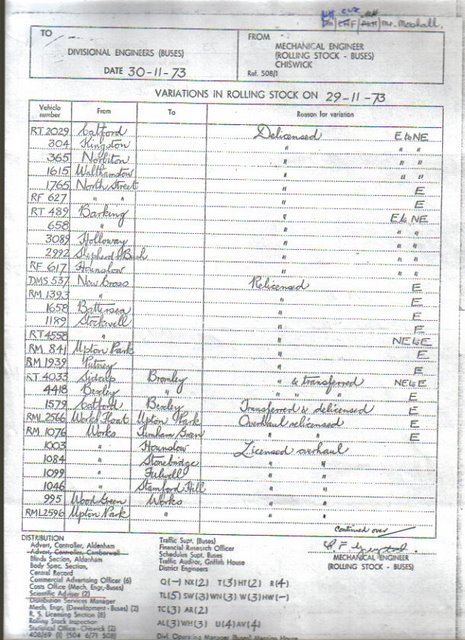 TO
DIVISIONAL ENGINEERS (BUSES)
DATE 30-11-73
FROM
MECHANICAL ENGINEER
(ROLLING STOCK - BUSES)
CHISWICK
Ref. 508/1
VARIATIONS IN ROLLING STOCK ON 29-11-73
Vehicle number From To Reason for variation
RT 2029 Catford Delicensed E & NE
304 Kingston " " "
365 Norbiton " " "
1615 Walthamstow " " "
1765 North Street " E
RF 627 " " " E
RT 489 Barking " E & NE
658 " " " "
3089 Holloway " " "
2992 Shepherds Bush " " "
RF 617 Hounslow " " "
DMS 537 New Cross Relicensed E
RM 1393 " " E
1658 Battersea " E
1189 Stockwell " E
RT 4558 " " NE & E
RM 841 Upton Park " E
RM 1939 Putney " E
RT 4033 Sidcup Bromley " & transferred NE & E
4418 Bexley " " " " E
1579 Catford Bexley Transferred & delicensed E
RML 2566 Works Float Upton Park Overhaul relicensed E
RM 1076 Works Turnham Green " " E
1003 " Hounslow Licensed overhaul
1084 " Stonebridge " "
1099 " Fulwell " "
1046 " Stamford Hill " "
995 Wood Green Works " "
RML 2596 Upton Park " " "
Continued over
DISTRIBUTION
Advert. Controller, Aldenham
Advert. Controller, Camberwell
Blinds Section, Aldenham
Body Spec. Section,
Central Record
Commercial Advertising Officer (6)
Costs Office (Mech. Engr.-Buses)
Scientific Adviser (2)
Distribution Services Manager
Mech. Engr. (Development - Buses) (2)
R. S. Licensing Section (8)
Rolling Stock Inspection
Statistical Office - Chiswick (2)
408/69 (1) (504 6/71 508)
Traffic Supt. (Buses)
Financial Research Officer
Schedules Supt. Buses
Traffic Auditor, Griffith House
District Engineers
Q(-) NX(2) T(3) HT(2) R(4)
TL(5) SW(3) WN(3) W(3) HW(-)
TC(3) AR(2)
AL(3) WH(3) U(4) AV(4)
MECHANICAL ENGINEER
(ROLLING STOCK - BUSES)